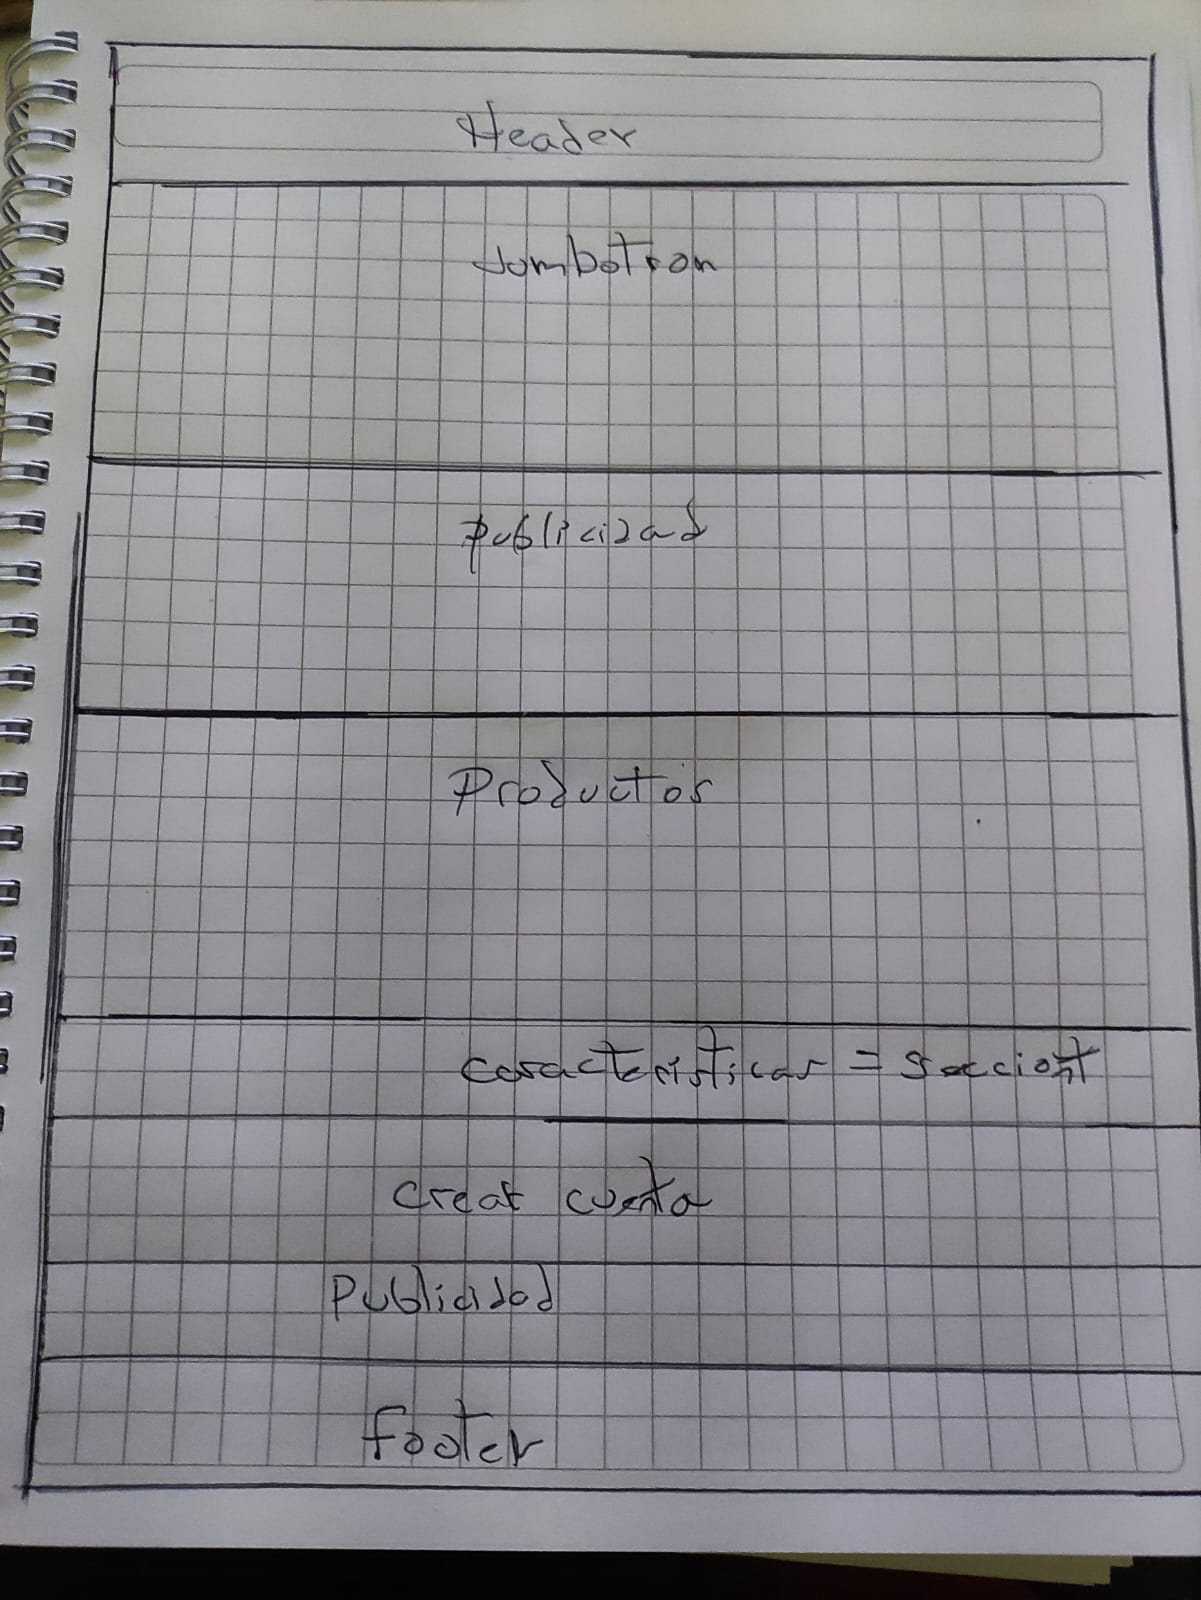 Header
Jombotron
publicidad
Productos
Caracteristicas =
Creat cuenta
Publicidad
footer